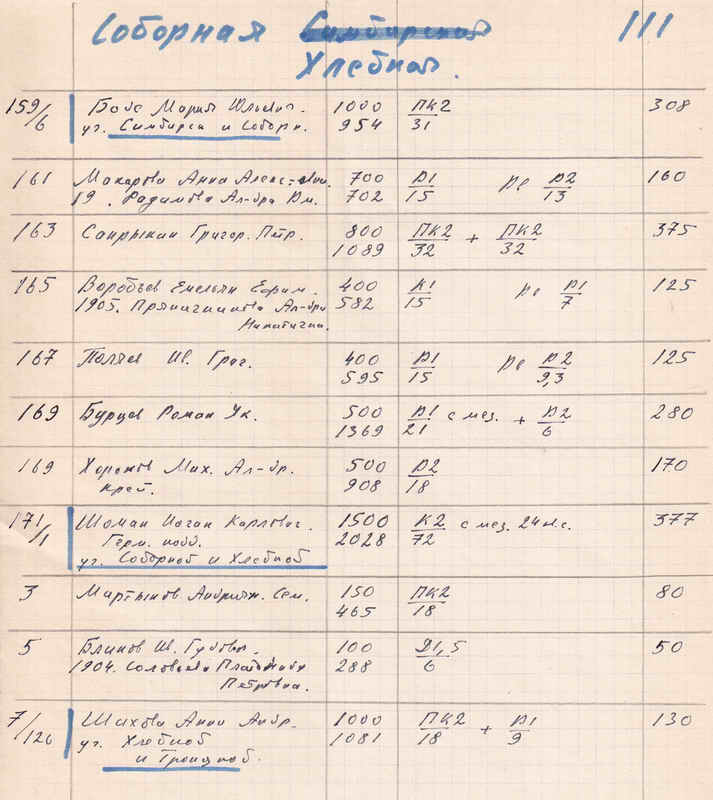 Соборная Симбирская 111
Хлебная.
159/6 Бобе Мария Юльевн. 1000 ПК2 308
уг. Симбирск и Соборн. 954 31
161 Макарова Анна Алекс-вна. 700 Д1 ре Д2 160
19 . Радимова Ал-дра Дм. 702 15 13
163 Сапрыкин Григор. Петр. 800 ПК2 + ПК2 375
1089 32 32
165 Воробьев Емельян Ефим. 400 К1 ре Д1 125
1905. Пряничникова Ал-дра 582 15 7
Никитична.
167 Ив. Григ. 400 Д1 ре Д2 125
595 15 9,3
169 Бурцев Роман Як. 500 Д1 с мез. + Д2 280
1369 21 6
169 Мих. Ал-др. 500 Д2 170
крест. 908 18
171/1 Шоман Иоган Карлович. 1500 К2 с мез. 24 н.с. 377
Герм. подд. 2028 72
уг. Соборной и Хлебной
3 Мартынов Андриян. Сем. 150 ПК2 80
465 18
5 Блинов Ив. 100 Д1,5 50
1904. Соловьева 288 6
Петровна.
7/126 Шахова Анна Андр. 1000 ПК2 + Д1 130
уг. Хлебной 1081 18 9
и Троицкой.